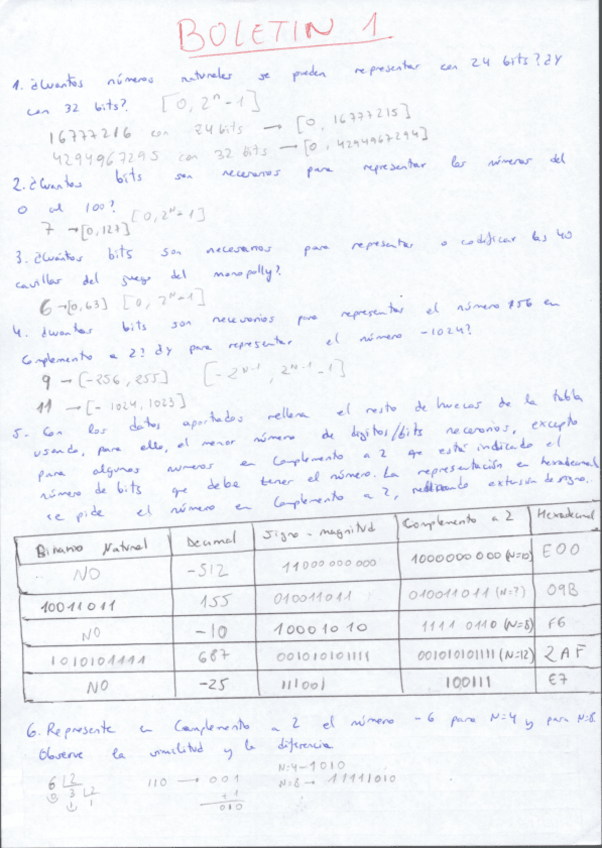 BOLETIN 1
1. ¿Cuantos números naturales se pueden representar con 24 bits? ¿Y
con 32 bits? [0, 2ⁿ-1]
16777216 con 24 bits → [0, 16777215]
4294967295 con 32 bits → [0, 4294967294]
2. ¿Cuantos bits son necesarios para representar los números del
0 al 100? [0, 2ᴺ-1]
7 → [0,127]
3. ¿Cuántos bits son necesarios para representar o codificar las 40
casillas del juego del monopolly?
6 → [0,63] [0, 2ᴺ-1]
4. ¿Cuantos bits son necesarios para representar el número 156 en
Complemento a 2? ¿Y para representar el número -1024?
9 → [-256, 255] [-2ᴺ⁻¹, 2ᴺ⁻¹-1]
11 → [-1024, 1023]
5. Con los datos aportados rellena el resto de huecos de la tabla
usando, para ello, el menor número de digitos/bits necesarios, excepto
para algunos numeros en Complemento a 2 que está indicado el
número de bits que debe tener el número. La representación en hexadecimal
se pide el número en Complemento a 2, realizando extension de signo.
Binario Natural Decimal Signo-magnitud Complemento a 2 Hexadecimal
NO -512 11000000000 1000000000 E00
10011011 155 010011011 010011011 (N=?) 09B
NO -10 10001010 1111 0110 (N=8) F6
1010101111 687 001010101111 001010101111 (N=12) 2AF
NO -25 111001 100111 E7
6. Represente en Complemento a 2 el número -6 para N=4 y para N=8.
Observe la similitud y la diferencia
N=4 → 1010
6 2 110 → 001 N=8 → 11111010
0 3 2
1 1
010